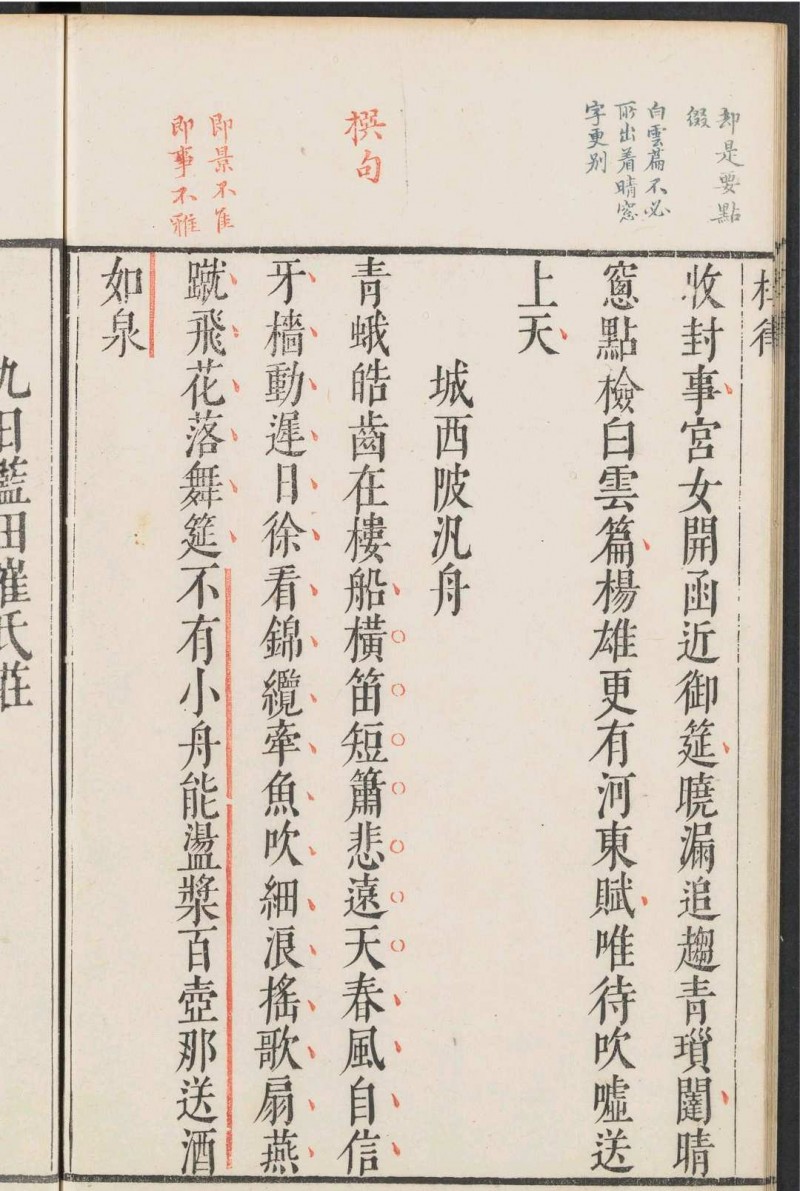 杜律
却是要點
綴
白雲篇不必
所出着晴窓
字更别
撰句
即景不隹
即事不雅
收封事宮女開函近御筵曉漏追趨青瑣闥晴
窻點檢白雲篇楊雄更有河東賦唯待吹噓送
上天
城西陂汎舟
青蛾皓齒在樓船橫笛短簫悲遠天春風自信
牙檣動遲日徐看錦纜牽魚吹細浪搖歌扇燕
蹴飛花落舞筵不有小舟能盪槳百壺那送酒
如泉
九日藍田崔氏莊